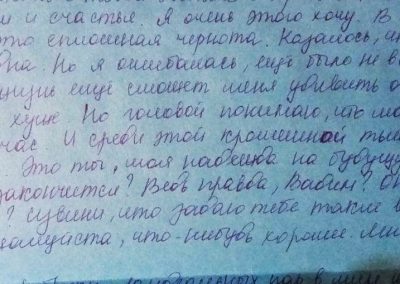 м и счастье. Я очень этого хочу. В
это сплошная чернота. Казалось, ни
дна! Но я ошибалась, ещё было не в
жизнь ещё сможет меня удивить о
хуже Но головой понимаю, что мо
час И среди этой кромешной ть
Это ты, моя надежда на будущ
закончится? Ведь правда, Вадим?
? извини, что задаю тебе такие в
жалуйста, что-нибудь хорошее.